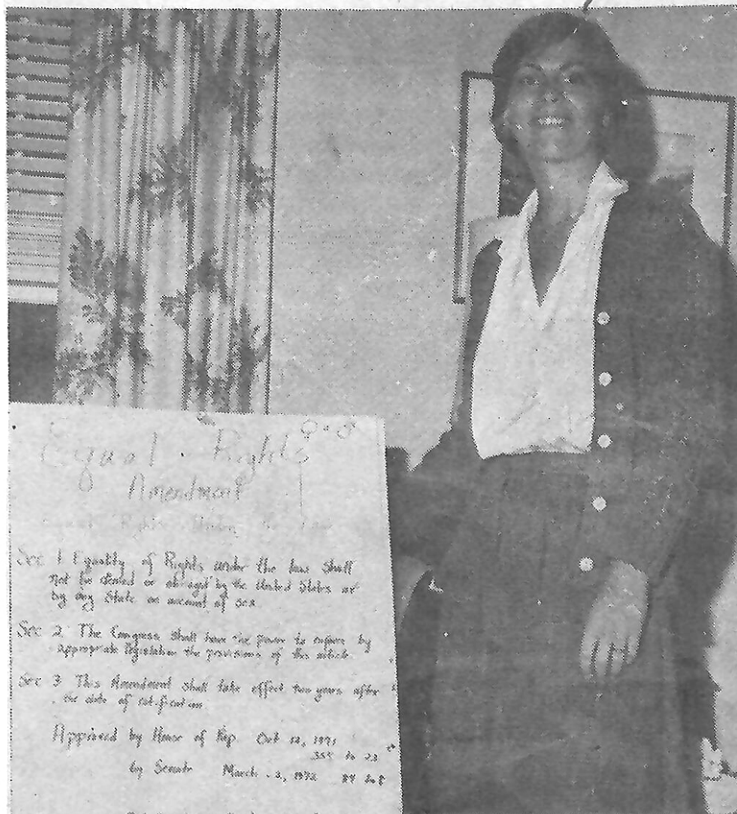 Equal Rights ♀=♂
Amendment
Equal Rights Under the Law
Sec 1 Equality of Rights under the law Shall
not be denied or by the United States or
by any State on account of sex
Sec 2 The Congress shall have the power to enforce by
appropriate legislation the provisions of this article.
Sec 3 This Amendment shall take effect two years after
the date of ratification
Approved by House of Rep. Oct 12, 1971
to 23
by Senate March 1972 84 to 8